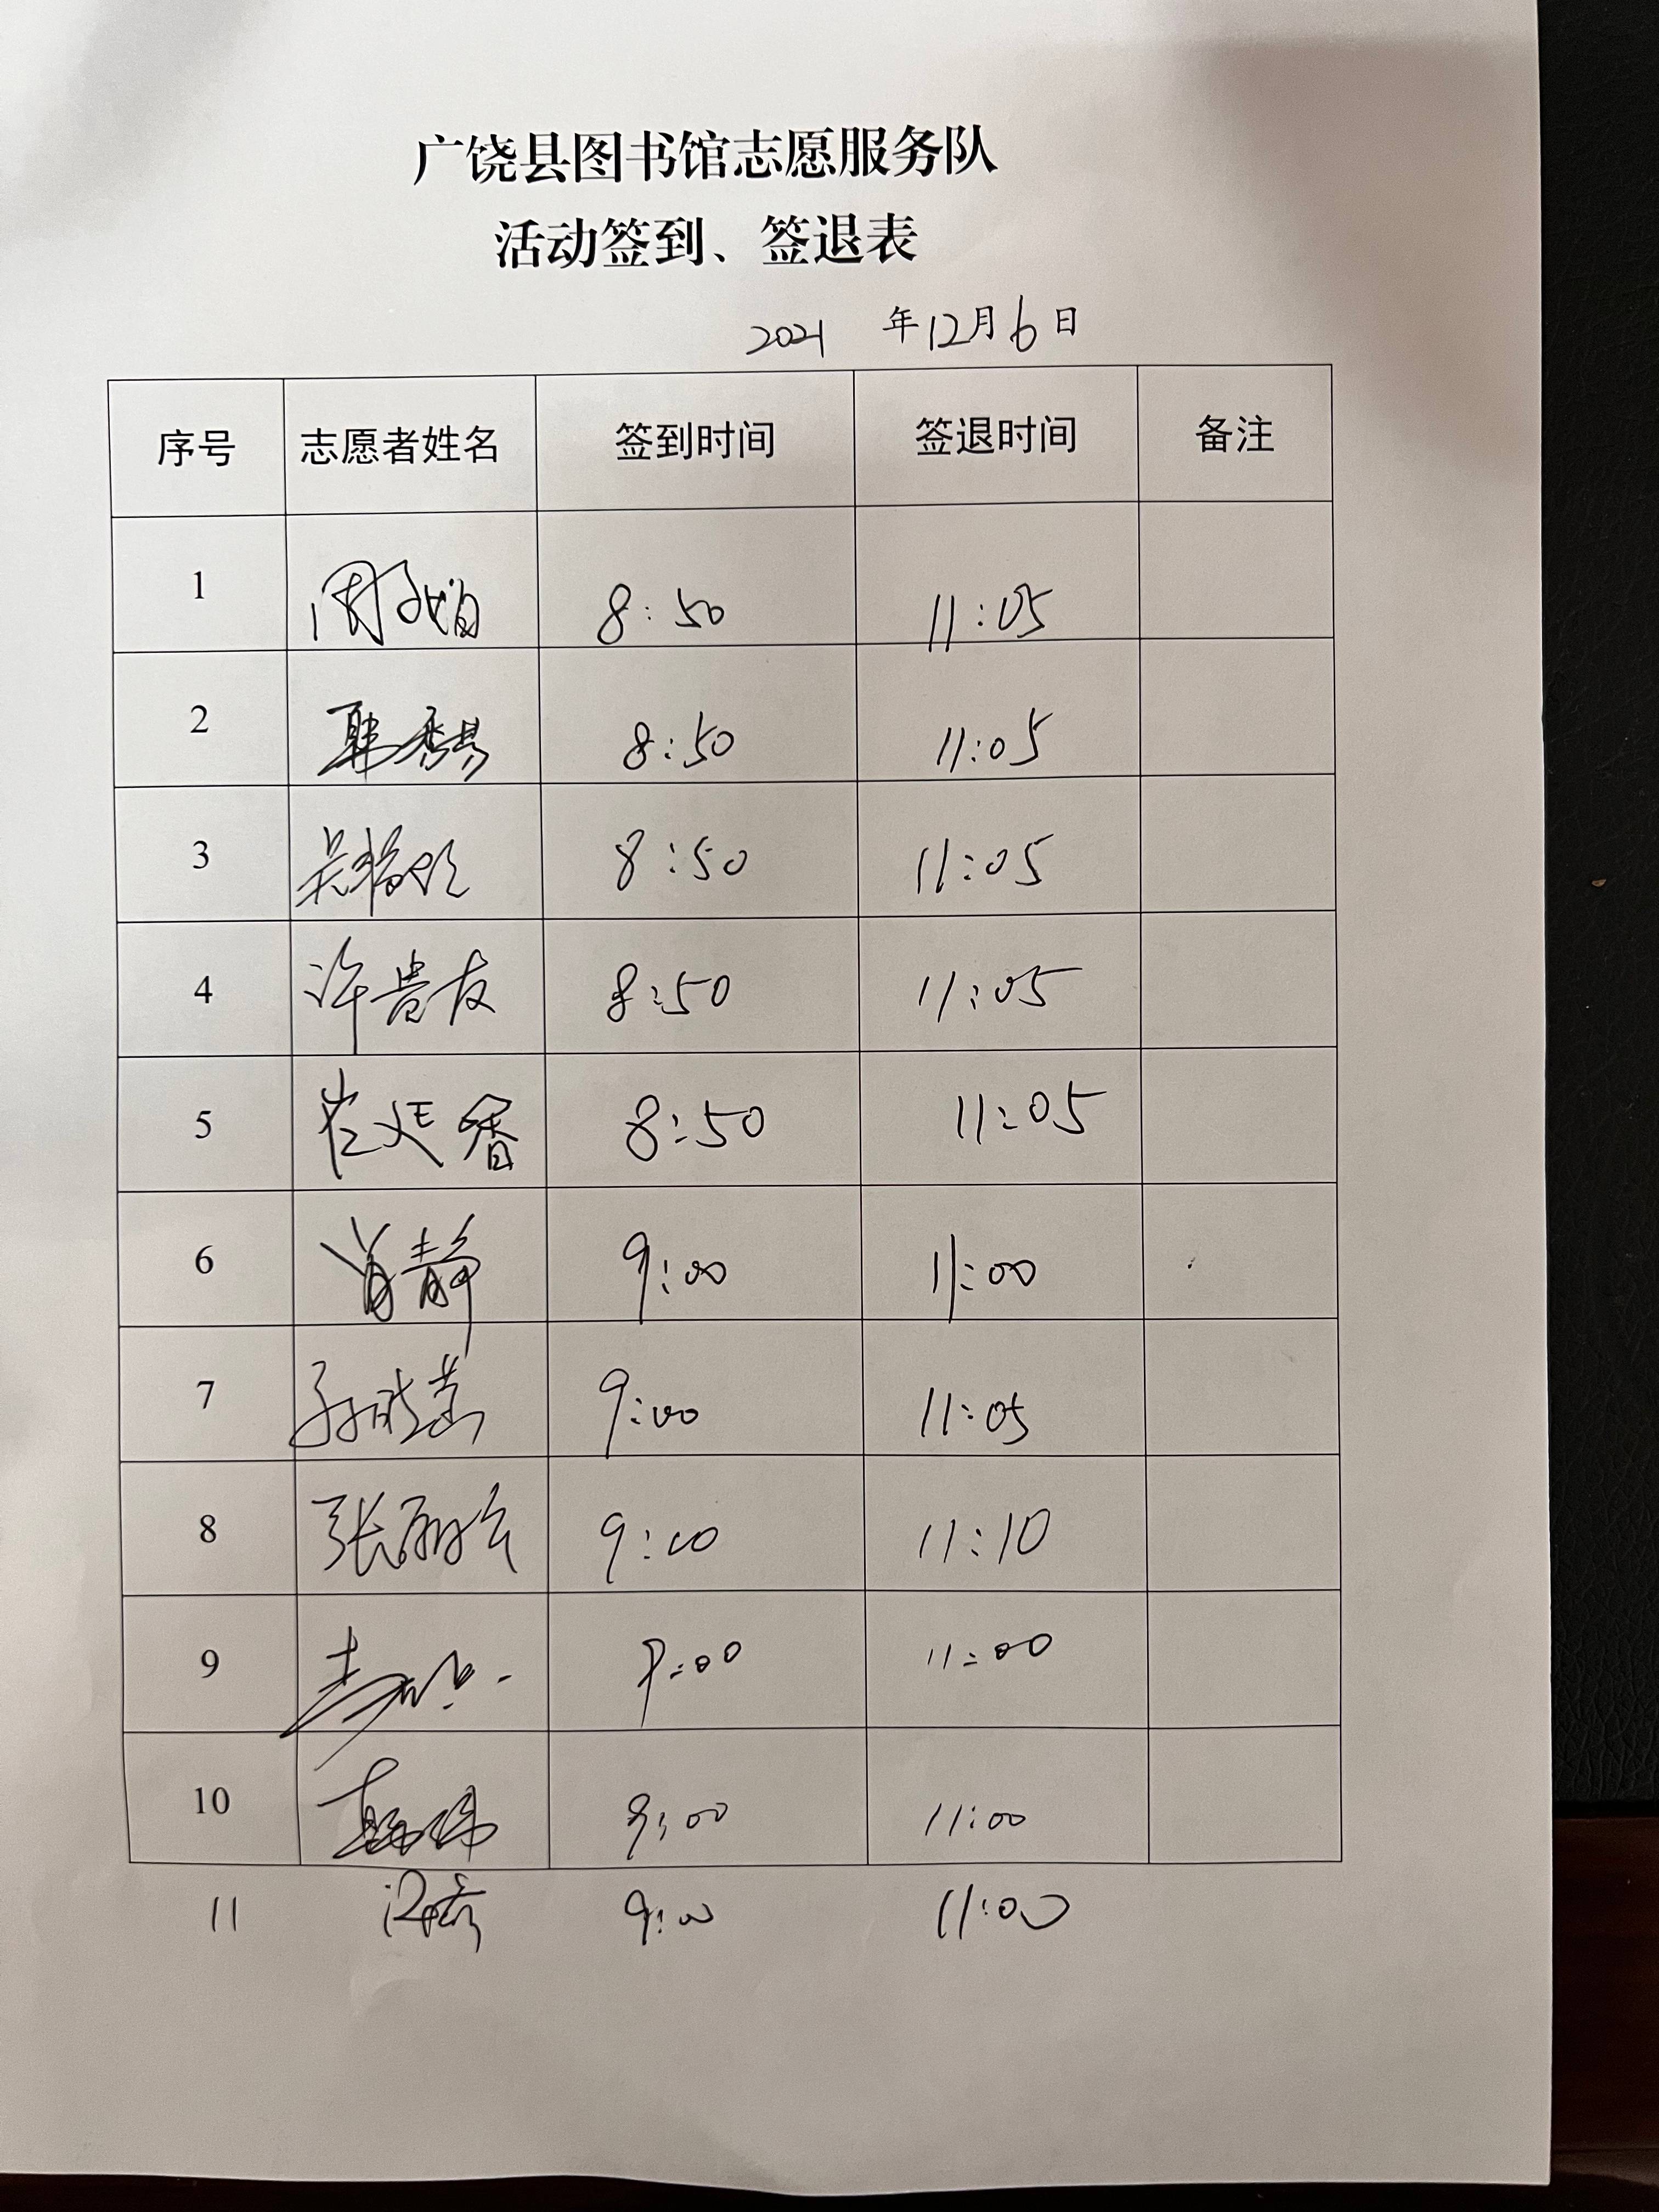 广饶县图书馆志愿服务队
活动签到、签退表
2021 年12月6日
序号 志愿者姓名 签到时间 签退时间 备注
1 8:50 11:05
2 8:50 11:05
3 8:50 11:05
4 许贵友 8:50 11:05
5 崔廷香 8:50 11:05
6 肖静 9:00 11:00
7 9:00 11:05
8 9:00 11:10
9 9:00 11:00
10 9:00 11:00
11 9:00 11:00